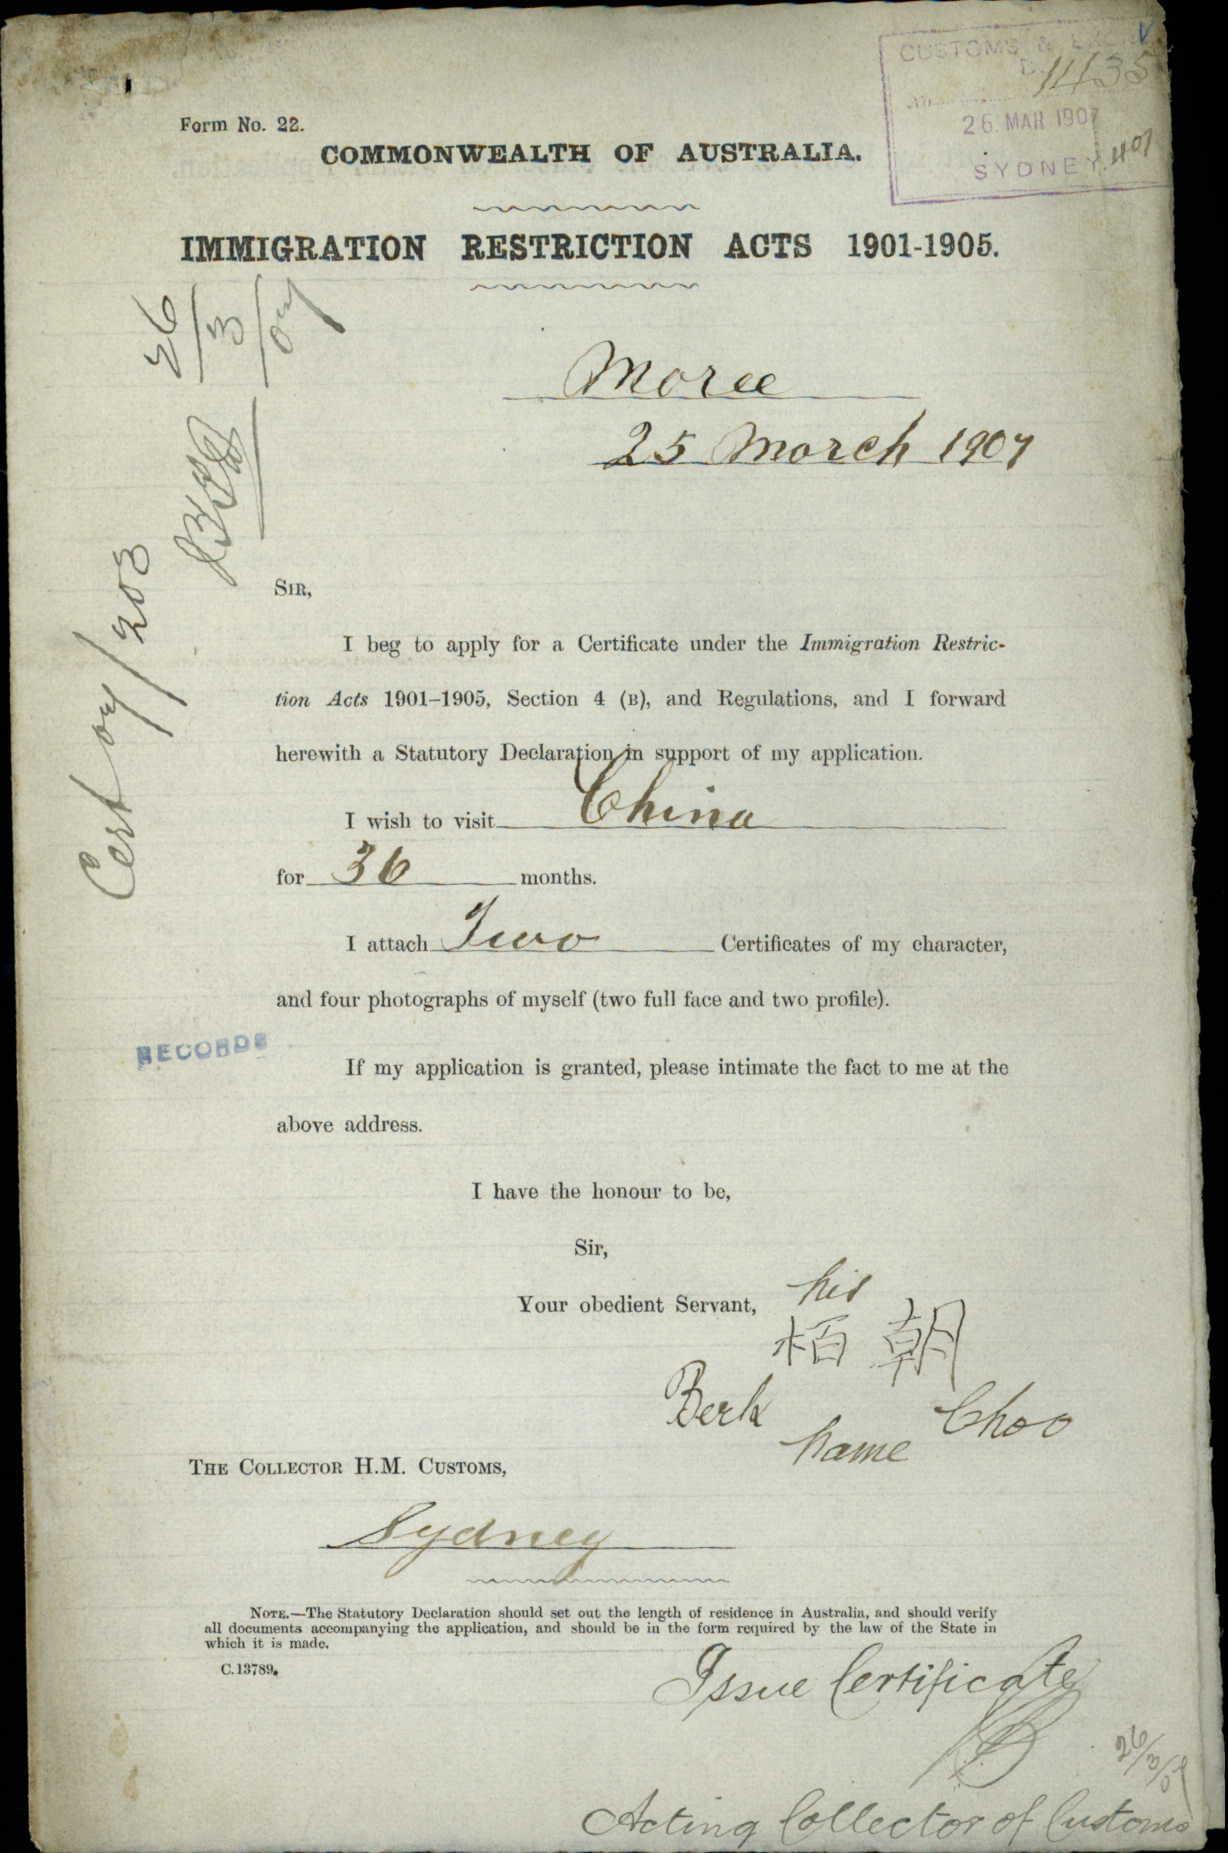 CUSTOMS &
11435
26 MAR 1907
SYDNEY
Form No. 22.
COMMONWEALTH OF AUSTRALIA.
IMMIGRATION RESTRICTION ACTS 1901-1905.
26/3/07
Cert 07/203
Moree
25 March 1907
SIR,
I beg to apply for a Certificate under the Immigration Restric-
tion Acts 1901–1905, Section 4 (B), and Regulations, and I forward
herewith a Statutory Declaration in support of my application.
I wish to visit China
for 36 months.
I attach Two Certificates of my character,
and four photographs of myself (two full face and two profile).
RECORDS
If my application is granted, please intimate the fact to me at the
above address.
I have the honour to be,
Sir,
Your obedient Servant,
his
栢 朝
Berk Choo
name
THE COLLECTOR H.M. CUSTOMS,
Sydney
NOTE.—The Statutory Declaration should set out the length of residence in Australia, and should verify
all documents accompanying the application, and should be in the form required by the law of the State in
which it is made.
C.13789.
Issue Certificate
26/3/07
Acting Collector of Customs